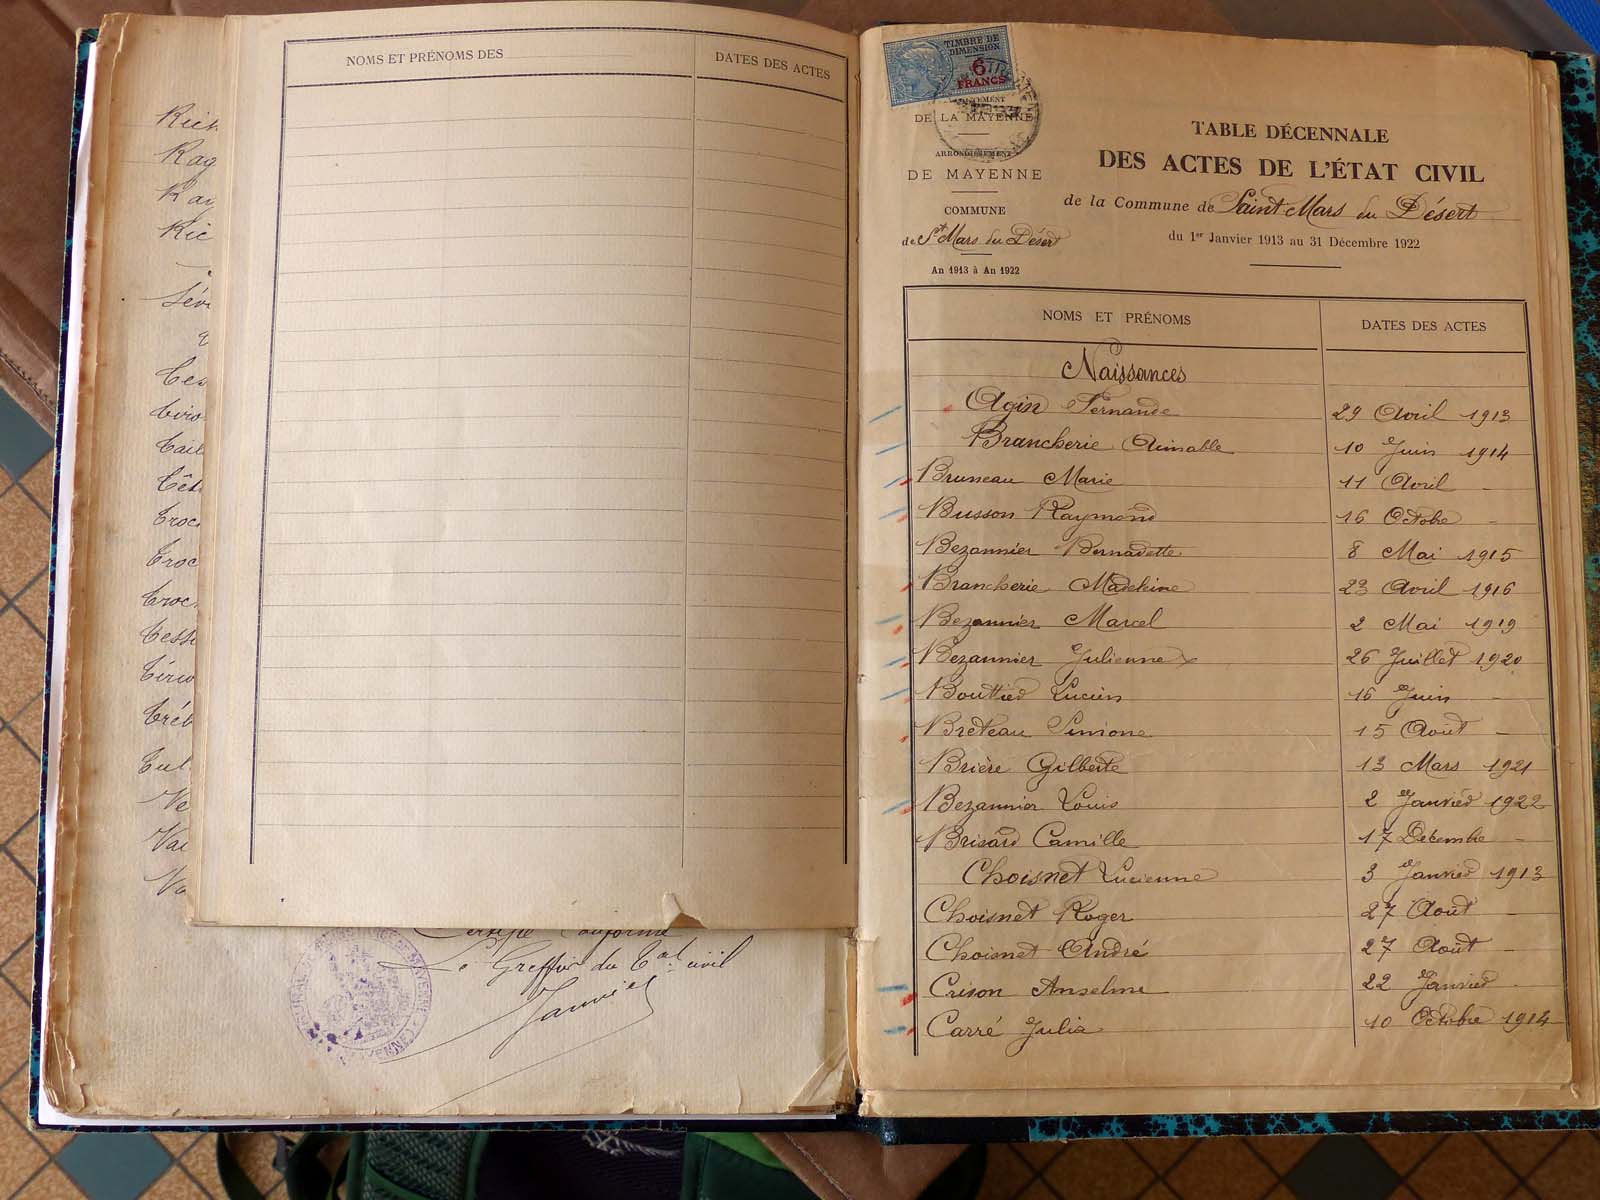 NOMS ET PRÉNOMS DES
DATES DES ACTES
Rich
Ray
Ric
Sév
Ces
Viro
Tail
Têt
Troc
Troc
Troc
Tess
Tiri
Tréb
Tul
Ve
Vai
Va
Certifié Conforme
Le Greffier du Tal civil
Janvier
TIMBRE DE
DIMENSION
6
FRANCS
DE LA MAYENNE
ARRONDISSEMENT
DE MAYENNE
COMMUNE
de St Mars du Désert
An 1913 à An 1922
TABLE DÉCENNALE
DES ACTES DE L'ÉTAT CIVIL
de la Commune de Saint Mars du Désert
du 1er Janvier 1913 au 31 Décembre 1922
NOMS ET PRÉNOMS DATES DES ACTES
Naissances
Agin Fernande 29 Avril 1913
Brancherie Aimable 10 Juin 1914
Bruneau Marie 11 Avril -
Busson Raymond 16 Octobre -
Bezannier Bernadette 8 Mai 1915
Brancherie Madeleine 23 Avril 1916
Bezannier Marcel 2 Mai 1919
Bezannier Julienne x 26 Juillet 1920
Bouttier Lucien 16 Juin -
Breteau Simone 15 Août -
Brière Gilberte 13 Mars 1921
Bezannier Louis 2 Janvier 1922
Brisard Camille 17 Décembre -
Choisnet Lucienne 3 Janvier 1913
Choisnet Roger 27 Août -
Choisnet André 27 Août -
Crison Anselme 22 Janvier -
Carré Julia 10 Octobre 1914